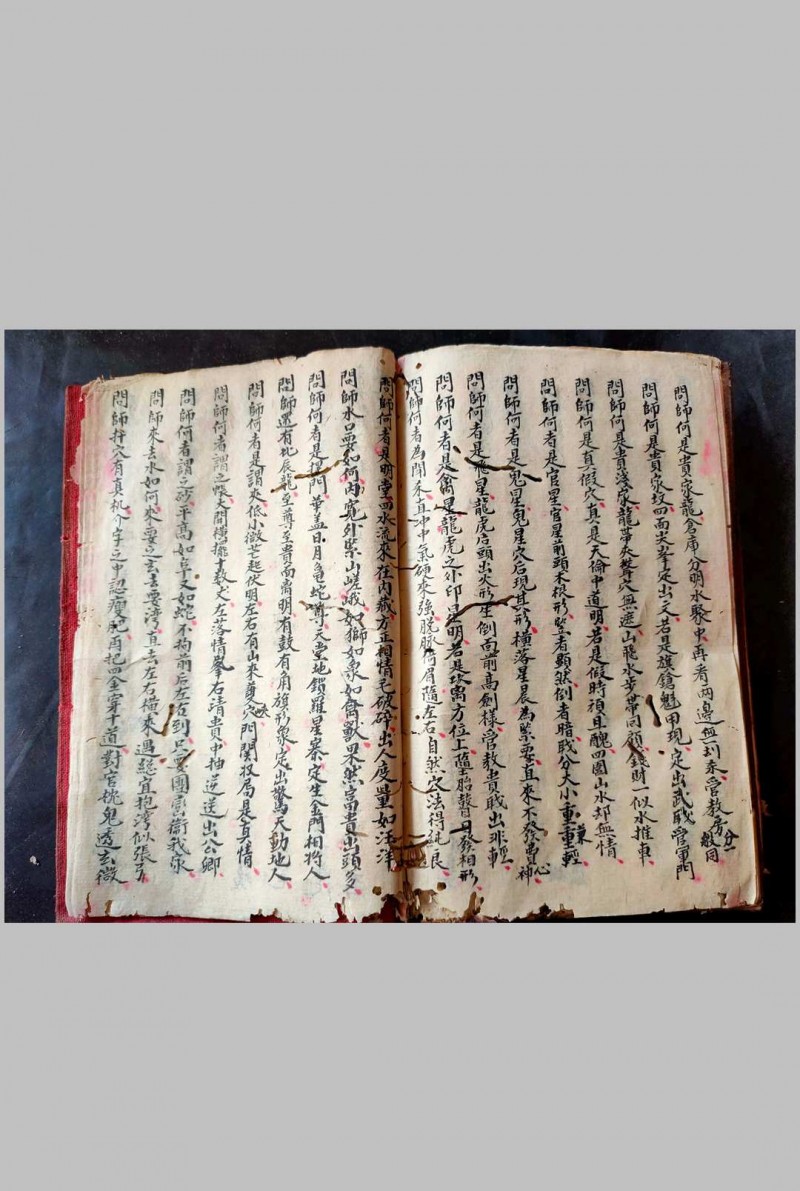 問師何是貴家龍倉庫分明水聚中再看兩邊無刦來管教房分一般同
問師何是貴家坟四面尖峯定出文若是旗鎗魁甲現定出武戝管軍門
問師何是貴淺家龍帶夾聳穴無遮山飛水步帶同顧錢財一似水推車
問師何是真假穴真是天倫中道明若是假時頑且醜四囲山水却無情
問師何者是官星官星前頭木根形竪者顕然倒者暗戝分大小重兼重輕
問師何者是鬼星鬼星穴后現其形橫落星晨為緊要直來不發費心神
問師何者是飛星龍虎店頭出火形生倒面前高劍樣管教貴戝出非輕
問師何者是禽星龍虎之外印是明若是坎离方位上墮胎瞽目發相形
問師何者為閗杀直冲中氣硬來強脱脱何眉隨左右自然穴法得純良
問師何者是明堂四水流來在内藏方正相情毛破碎出人度量如汪洋
問師水口要如何内寬外紧山嵯峨如獅如象如禽獸果然富貴出頭多
問師何者是捍門華盖日月龜蛇尊天堂地鎖羅星寨定生金門相將人
問師還有北辰龍至尊至貴而需明有鼓有角旗形象定出驚天動地人
問師何者是謂夾低小微芒起伏明左右有山來䕶峽穴門関投局是真情
問師何者謂之帳大開橫擺十数丈左落情擧右清貴中抽逆送出公卿
問師何者謂之砂平高如草又如蛇不拘前后左右到只要團乱衞我家
問師來去水如何來要之玄去要湾直去左右橫來遇總宜抱湾似張弓
問師扞穴有真机个字之中認瘦肥再把四金穿十道對官枕鬼透玄微